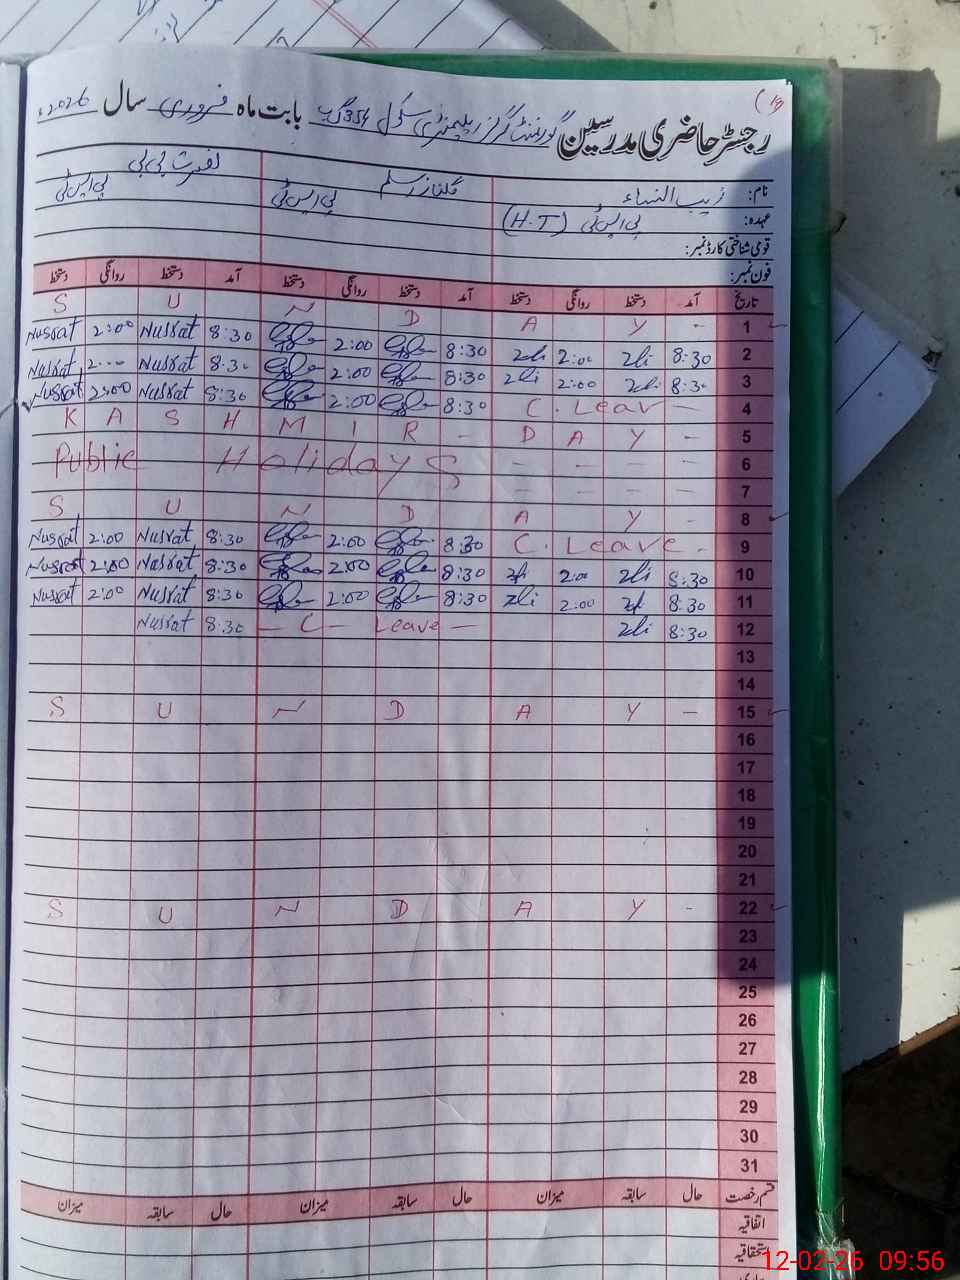 رجسٹر حاضری مدرسین گورنمنٹ گرلز ایلیمنٹری سکول 354 گ ب بابت ماہ فروری سال 2026ء
نام: زیب النساء گلناز نصرت بی بی
عہدہ: پی ایس ٹی (H.T) پی ایس ٹی پی ایس ٹی
قومی شناختی کارڈ نمبر:
فون نمبر:
تاریخ آمد دستخط روانگی دستخط آمد دستخط روانگی دستخط آمد دستخط روانگی دستخط
S U N D A Y - 1
Nusrat 2:00 Nusrat 8:30 2:00 8:30 2:00 8:30 2
Nusrat 2:-- Nusrat 8:30 2:00 8:30 2:00 8:30 3
Nusrat 2:00 Nusrat 8:30 2:00 8:30 C. Leav - 4
K A S H M I R - D A Y - 5
Public Holidays - - - - 6
- - - - 7
S U N D A Y - 8
Nusrat 2:00 Nusrat 8:30 2:00 8:30 C. Leave - 9
Nusrat 2:00 Nusrat 8:30 2:00 8:30 2:00 8:30 10
Nusrat 2:00 Nusrat 8:30 2:00 8:30 2:00 8:30 11
Nusrat 8:30 - C - Leave - 8:30 12
13
14
S U N D A Y - 15
16
17
18
19
20
21
S U N D A Y - 22
23
24
25
26
27
28
29
30
31
قسم رخصت حال سابقہ میزان حال سابقہ میزان حال سابقہ میزان
اتفاقیہ
استحقاقیہ
12-02-26 09:56